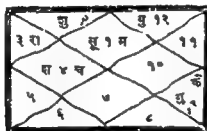 शु २ बु १२
३ रा सू १ म ११
श ४ च १०
५ ७ के
६ ८